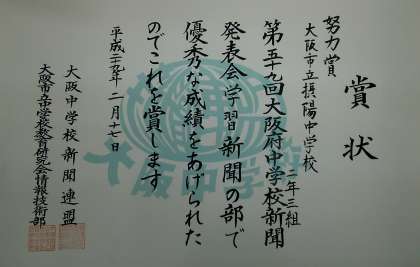 賞状
努力賞
大阪市立摂陽中学校
二年三組
第五十九回大阪府中学校新聞
発表会学習新聞の部で
優秀な成績をあげられた
のでこれを賞します
平成二十九年二月十七日
大阪中学校新聞連盟
大阪市立中学校教育研究会情報技術部